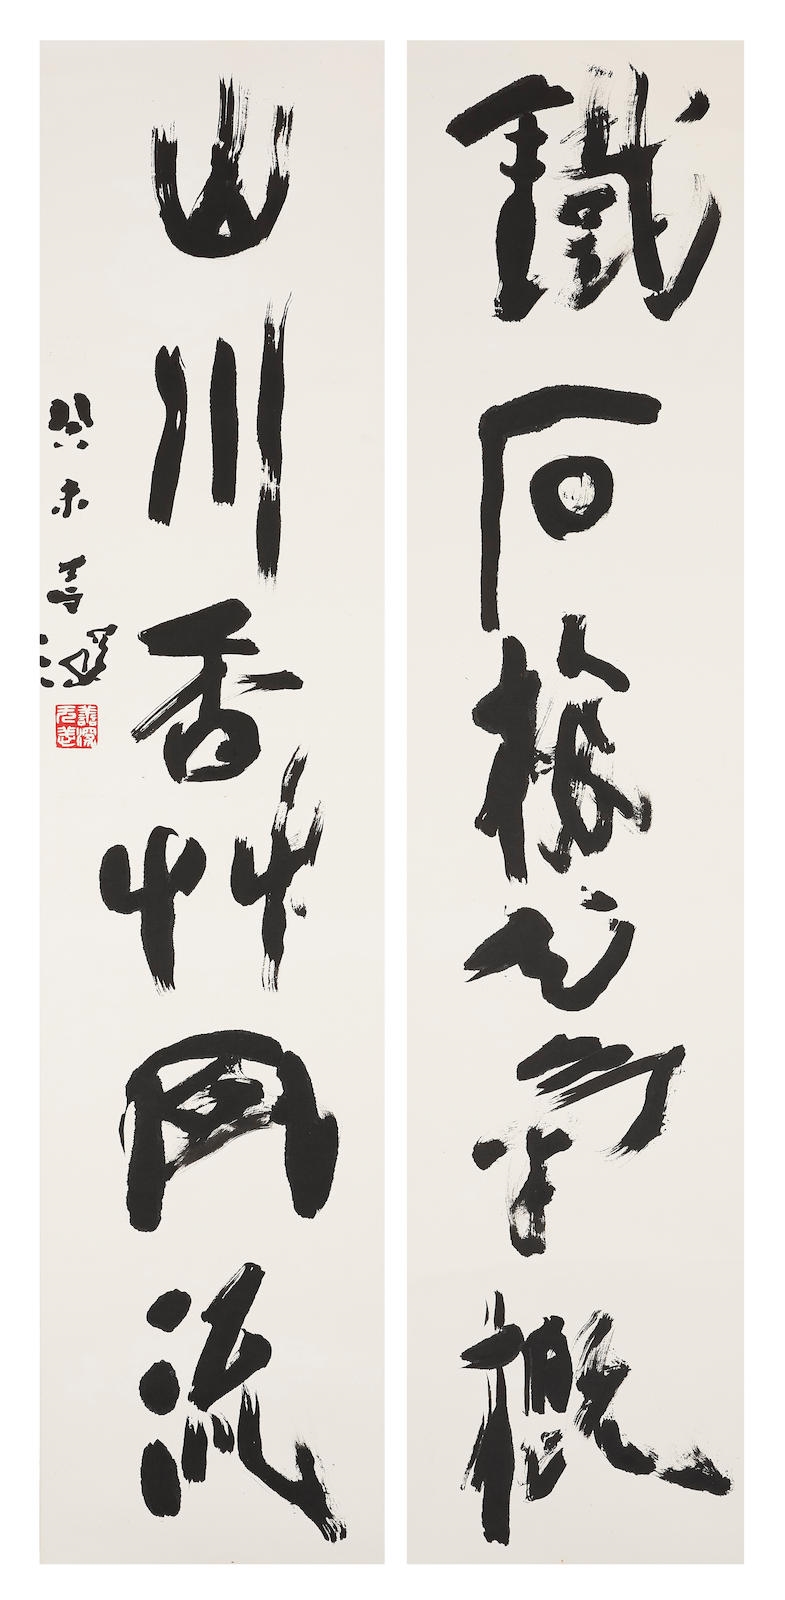 鐵石梅花氣概
山川香艸風流
癸未